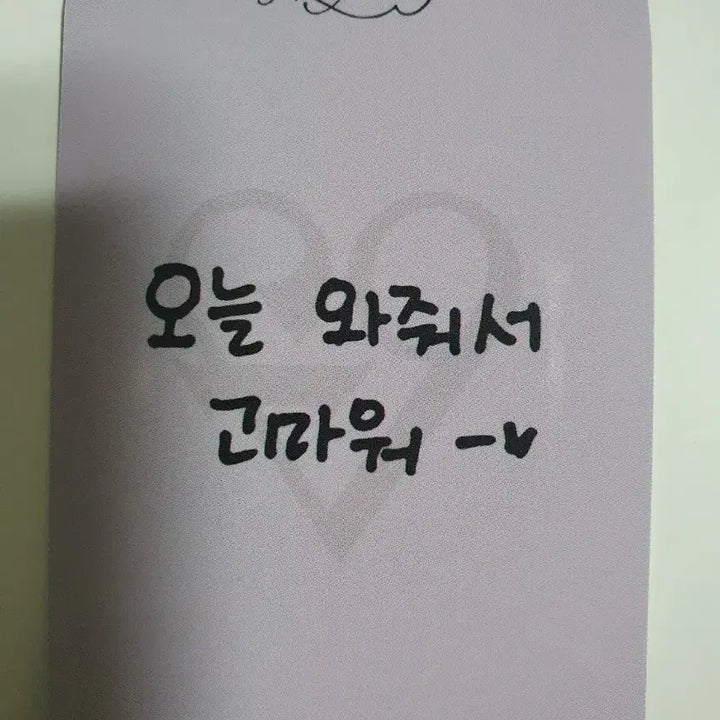 오늘 와줘서
고마워 -♥